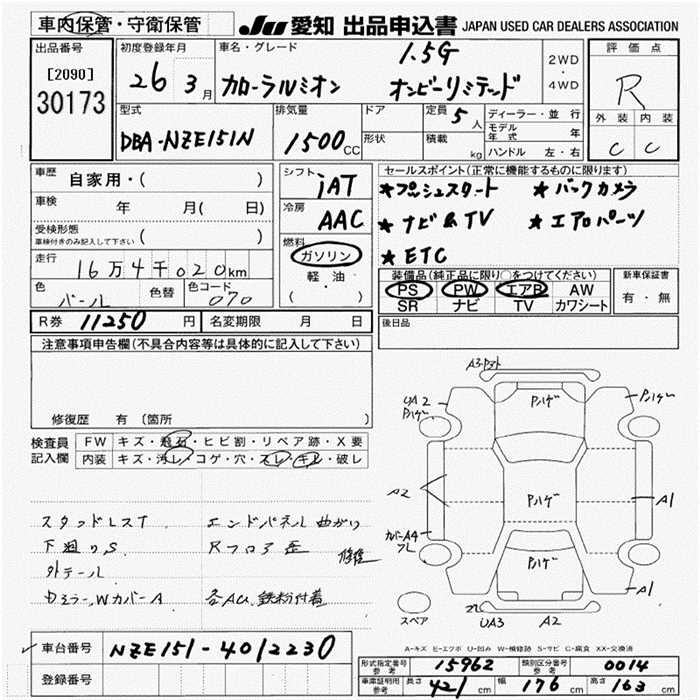 車内保管・守衛保管
JU 愛知 出品申込書 JAPAN USED CAR DEALERS ASSOCIATION
出品番号
[2090]
30173
初度登録年月
26 3月
車名・グレード
1.5G
カローラルミオン オンビーリミテッド
2WD
・
4WD
評価点
R
外装 内装
C C
型式
DBA-NZE151N
排気量
1500CC
ドア
形状
定員 5人
積載 kg
ディーラー・並行
モデル年式 年
ハンドル 左・右
車歴 自家用・( )
車検 年 月( 日)
受検形態
車検付きのみ記入して下さい ( )
走行
16万4千020km
色 パール 色替 色コード 070
シフト
IAT
冷房
AAC
燃料
ガソリン
軽・油
( )
セールスポイント(正常に機能するものに限ります)
★プッシュスタート ★バックカメラ
★ナビ&TV ★エアロパーツ
★ETC
装備品(純正品に限り○をつけてください)
PS PW エアB AW
SR ナビ TV カワシート
新車保証書
有・無
R券 11250円 名変期限 月 日
後日品
注意事項申告欄(不具合内容等は具体的に記入して下さい)
修復歴 有 〔箇所
検査員
記入欄
FW キズ・飛石・ヒビ割・リペア跡・X要
内装 キズ・汚レ・コゲ・穴・スレ・キレ・破レ
スタッドレスT エンドパネル曲がり
下廻りS Rフロア歪 修復
外テール
Wカバー A 各AU 鉄粉付着
A3
UA2
Pハゲ
Pハゲ
Pハゲ
A2
Pハゲ
A1
カバーA4
ワレ
Pハゲ
A1
スペア
UA3
A2
A-キズ E-エクボ U-凹み W-補修跡 S-サビ C-腐食 XX-交換済
車台番号 NZE151-4012230
登録番号
型式指定番号
参考
15962
類別区分番号
参考
0014
車庫証明用
参考
長さ 421cm 幅 176cm 高さ 163cm